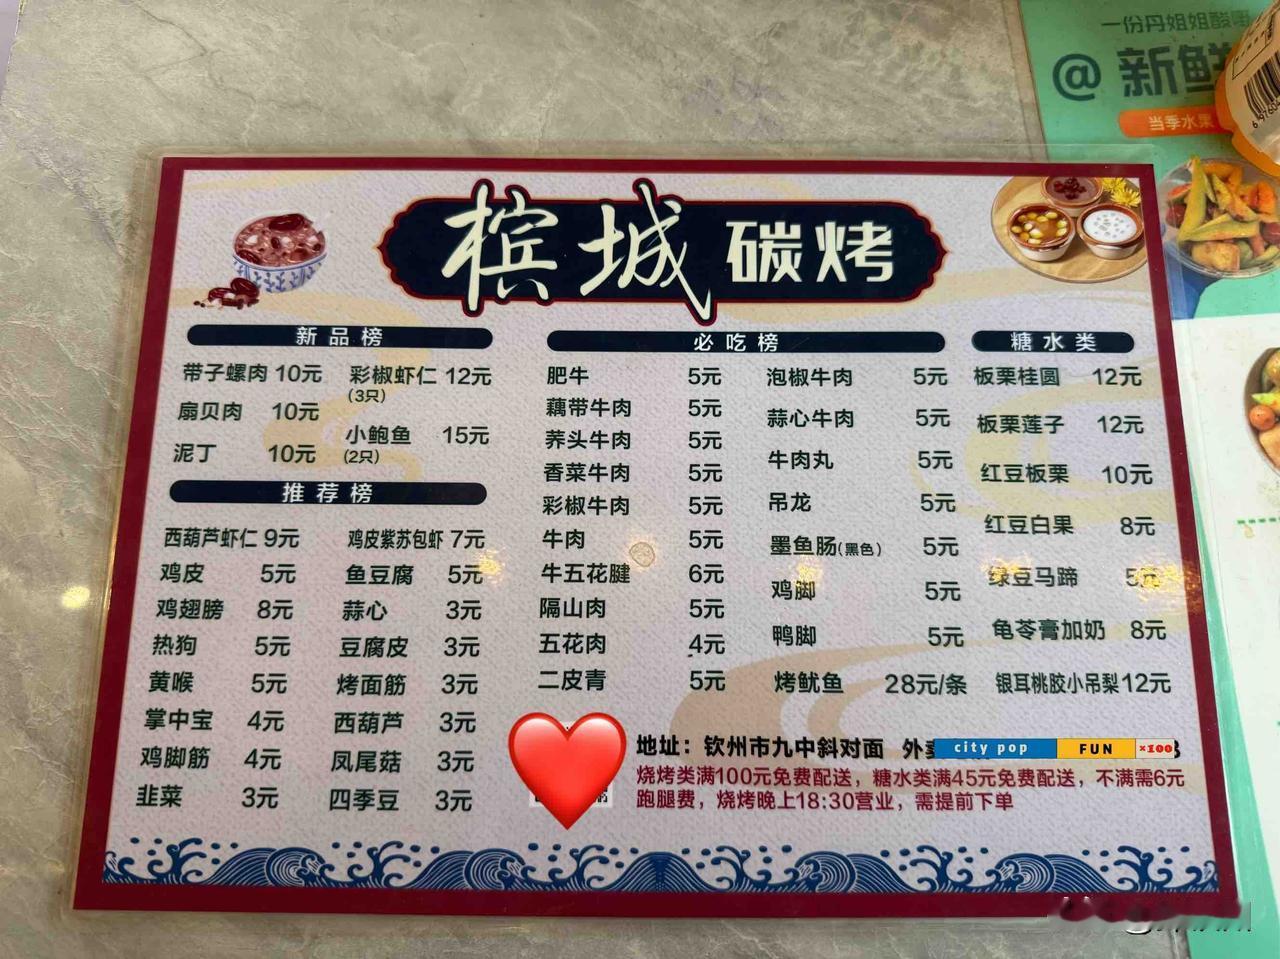 一份丹姐姐酸嘢
@新鲜
当季水果
槟城碳烤
新品榜
带子螺肉 10元
彩椒虾仁 12元
(3只)
扇贝肉 10元
小鲍鱼 15元
(2只)
泥丁 10元
推荐榜
西葫芦虾仁 9元
鸡皮紫苏包虾 7元
鸡皮 5元
鱼豆腐 5元
鸡翅膀 8元
蒜心 3元
热狗 5元
豆腐皮 3元
黄喉 5元
烤面筋 3元
掌中宝 4元
西葫芦 3元
鸡脚筋 4元
凤尾菇 3元
韭菜 3元
四季豆 3元
必吃榜
肥牛 5元
泡椒牛肉 5元
藕带牛肉 5元
蒜心牛肉 5元
荞头牛肉 5元
牛肉丸 5元
香菜牛肉 5元
吊龙 5元
彩椒牛肉 5元
墨鱼肠(黑色) 5元
牛肉 5元
鸡脚 5元
牛五花腱 6元
鸭脚 5元
隔山肉 5元
烤鱿鱼 28元/条
五花肉 4元
二皮青 5元
糖水类
板栗桂圆 12元
板栗莲子 12元
红豆板栗 10元
红豆白果 8元
绿豆马蹄 5元
龟苓膏加奶 8元
银耳桃胶小吊梨 12元
地址：钦州市九中斜对面 外卖
city pop FUN ×100
烧烤类满100元免费配送，糖水类满45元免费配送，不满需6元
跑腿费，烧烤晚上18:30营业，需提前下单